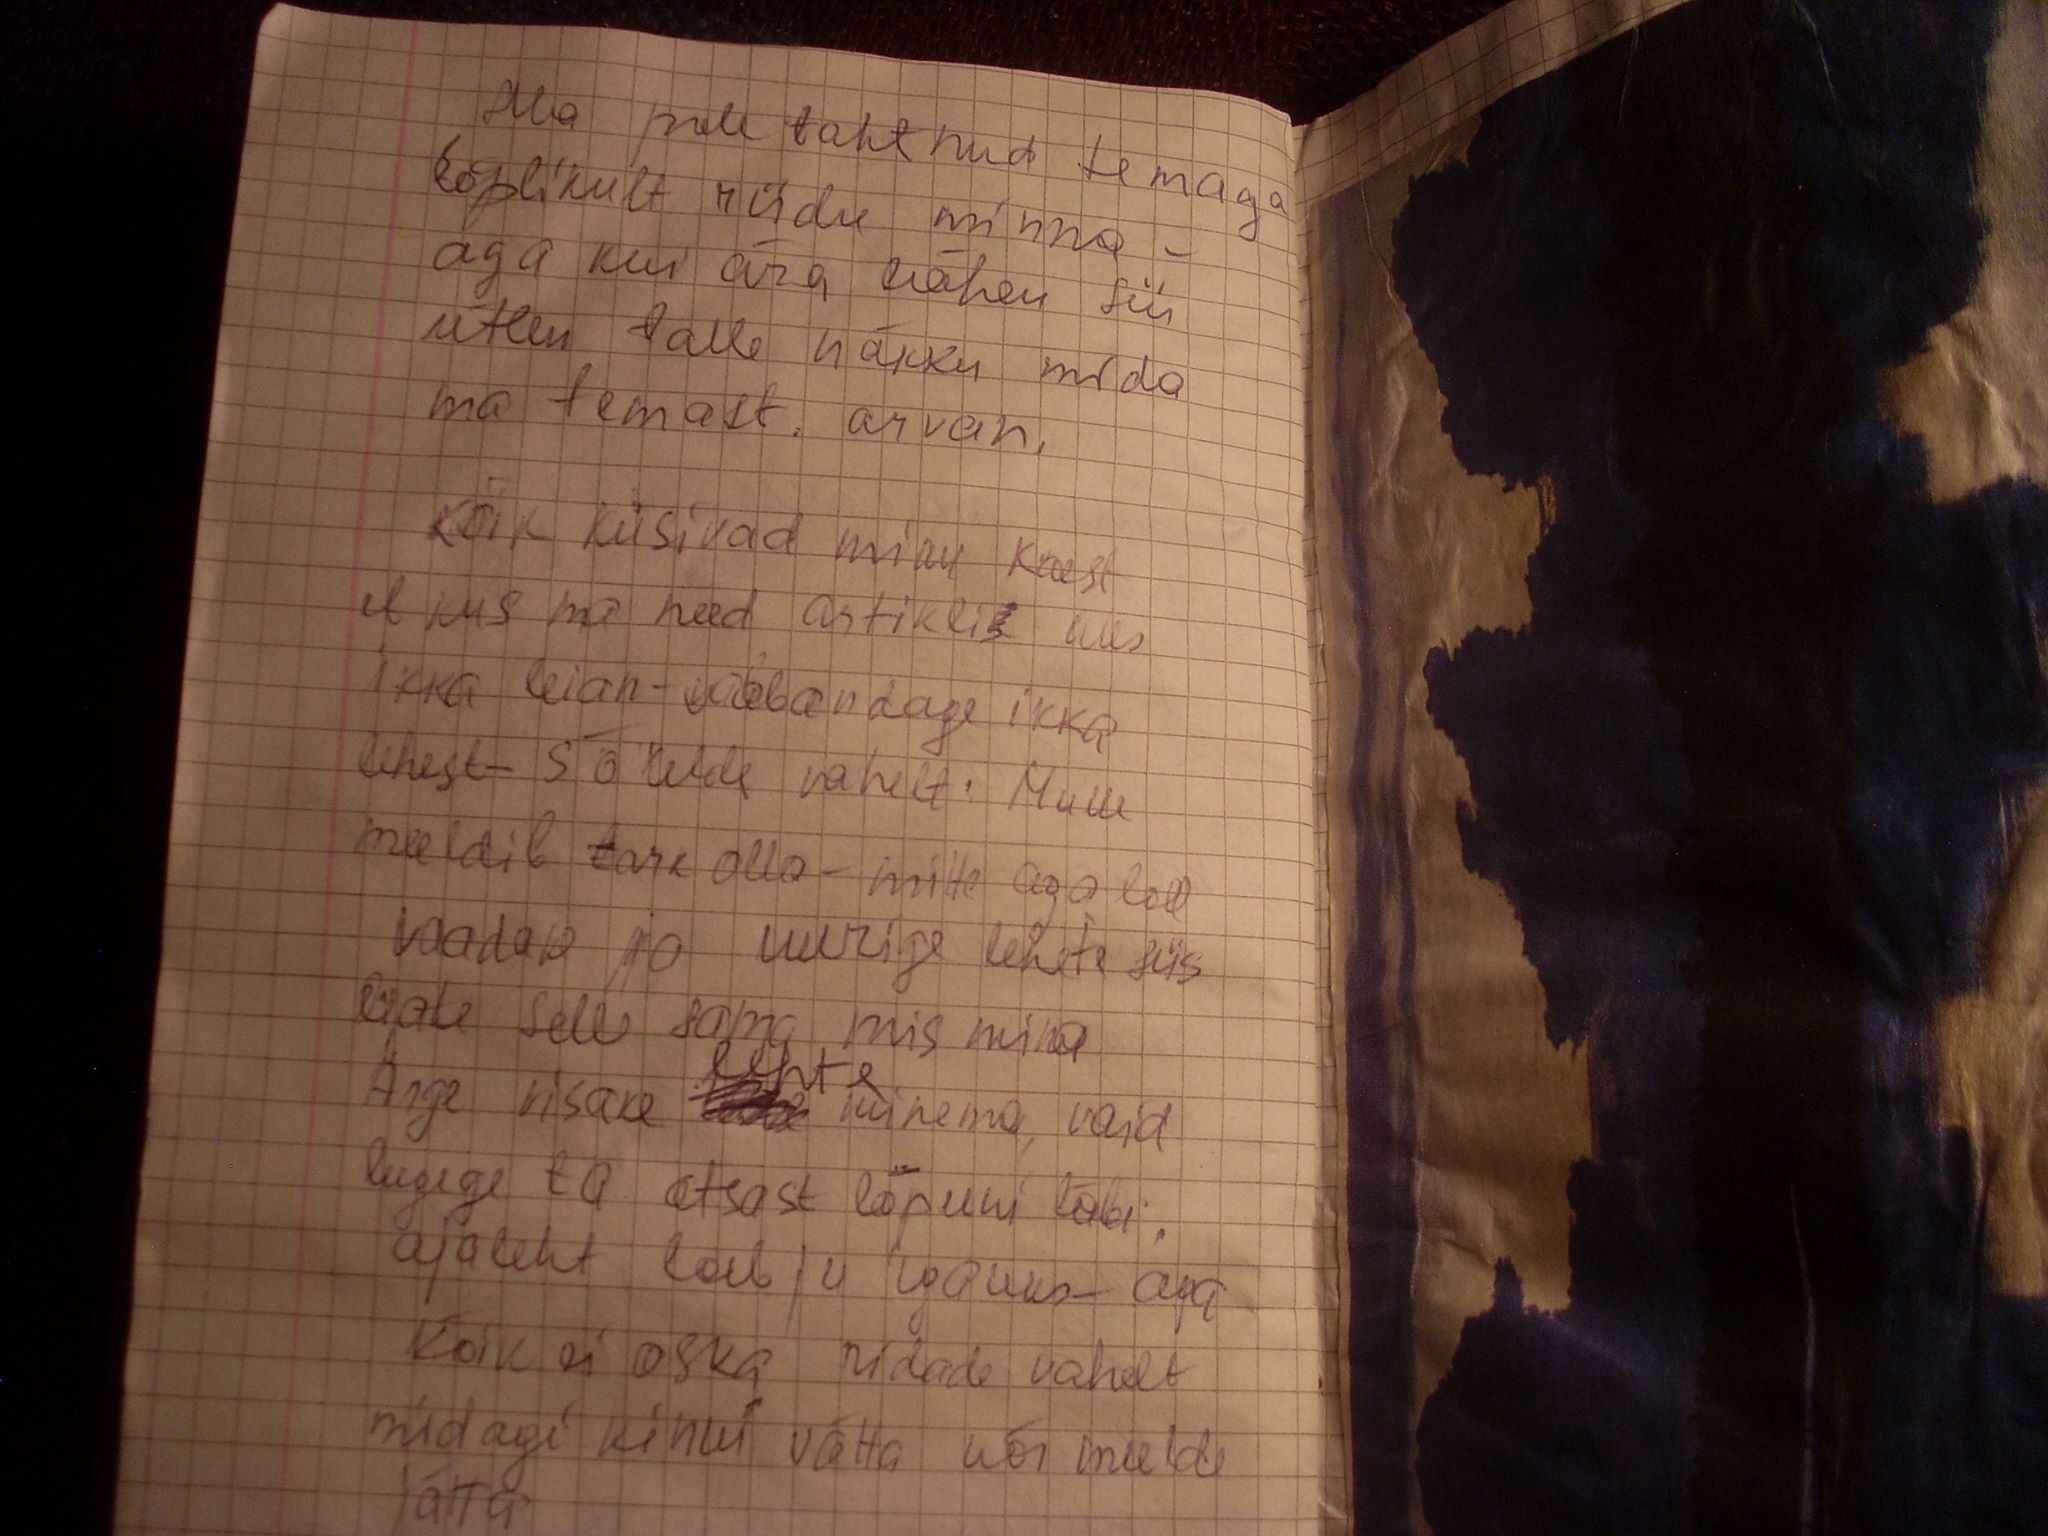 Ma pole tahtnud temaga
lõplikult riidu minna –
aga kui ära lähen siis
ütlen talle näkku mida
ma temast. arvan.
Kõik küsivad minu käest
et kus ma need artiklis
ikka leian – vabandage ikka
lehest – sõnelde vahelt. Mulle
meeldib tark olla – mitte aga loll
vaadake ja uurige lehte siis
leiate selle sama mis mina
Ärge visake lehte minema, vaid
lugege ta otsast lõpuni läbi.
ajaleht loeb ju igaüks – aga
Kõik ei oska ridade vahelt
midagi kinni võtta või meelde
jätta